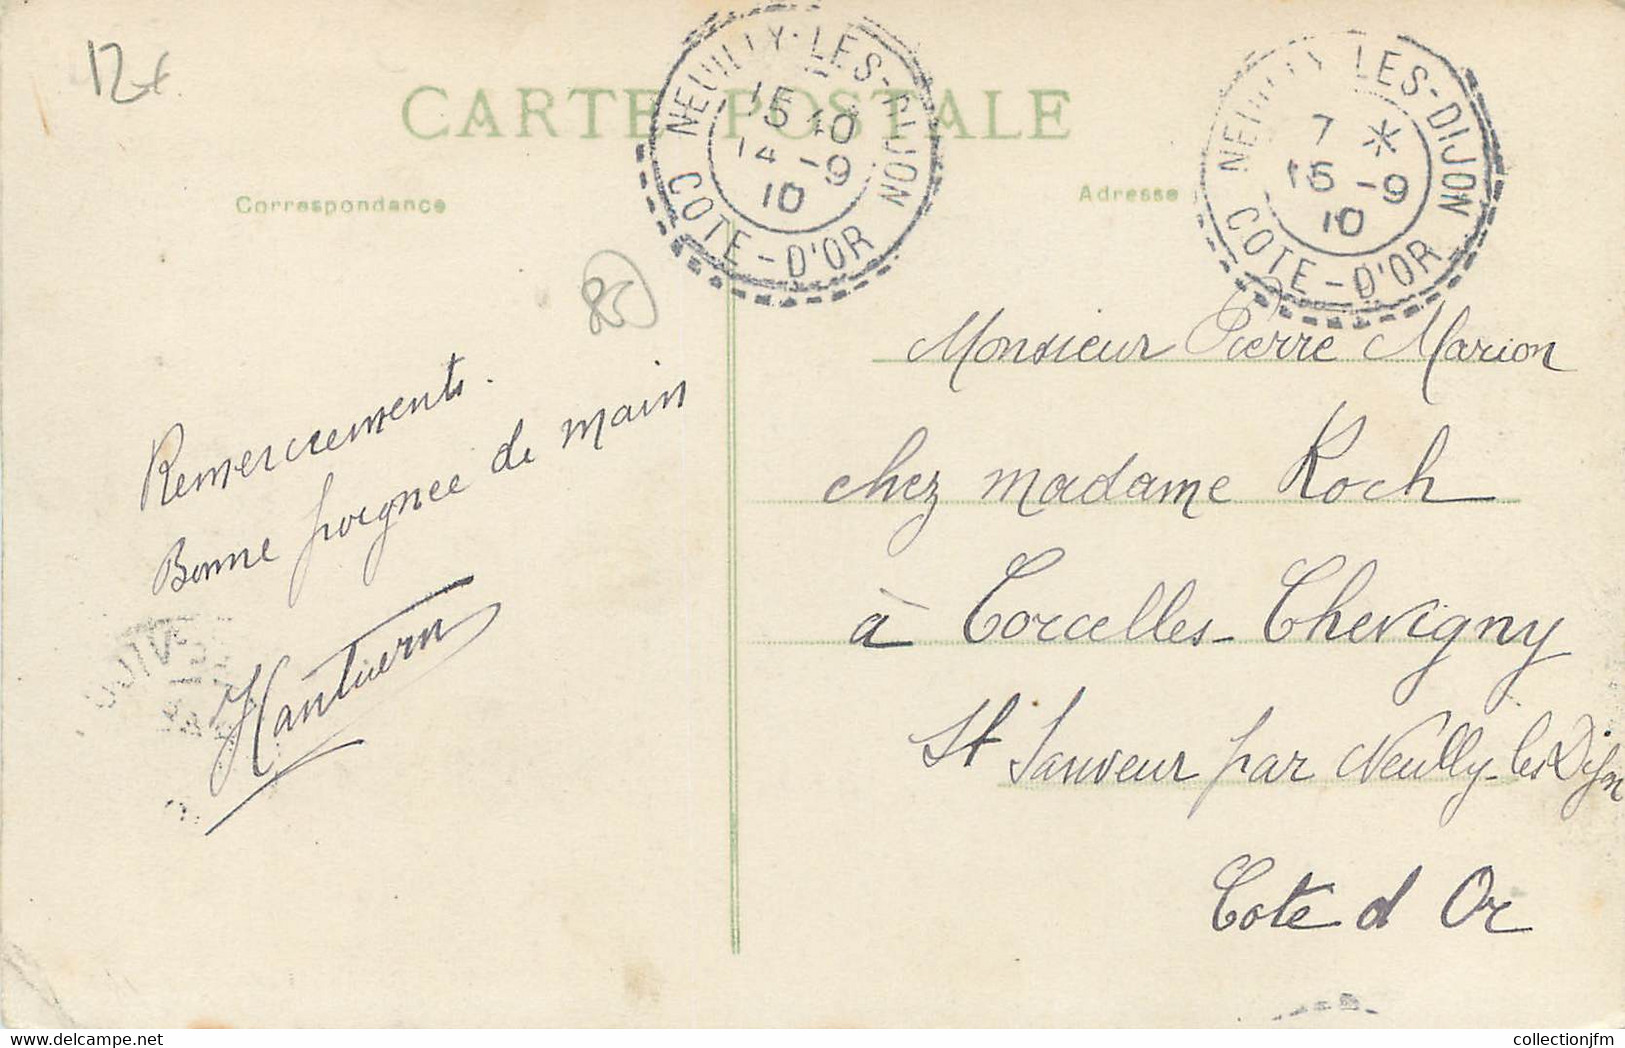 12€
CARTE POSTALE
Correspondance
Adresse
NEUILLY-LES-DIJON
15 10
14 -9
10
COTE-D'OR
NEUILLY LES-DIJON
7 *
15 -9
10
COTE-D'OR
Remerciements.
Bonne poignée de main
Monsieur Pierre Marion
chez madame Roch
à Corcelles-Chevigny
St Sauveur par Neuilly-les Dijon
Cote d Or
collectionjfm